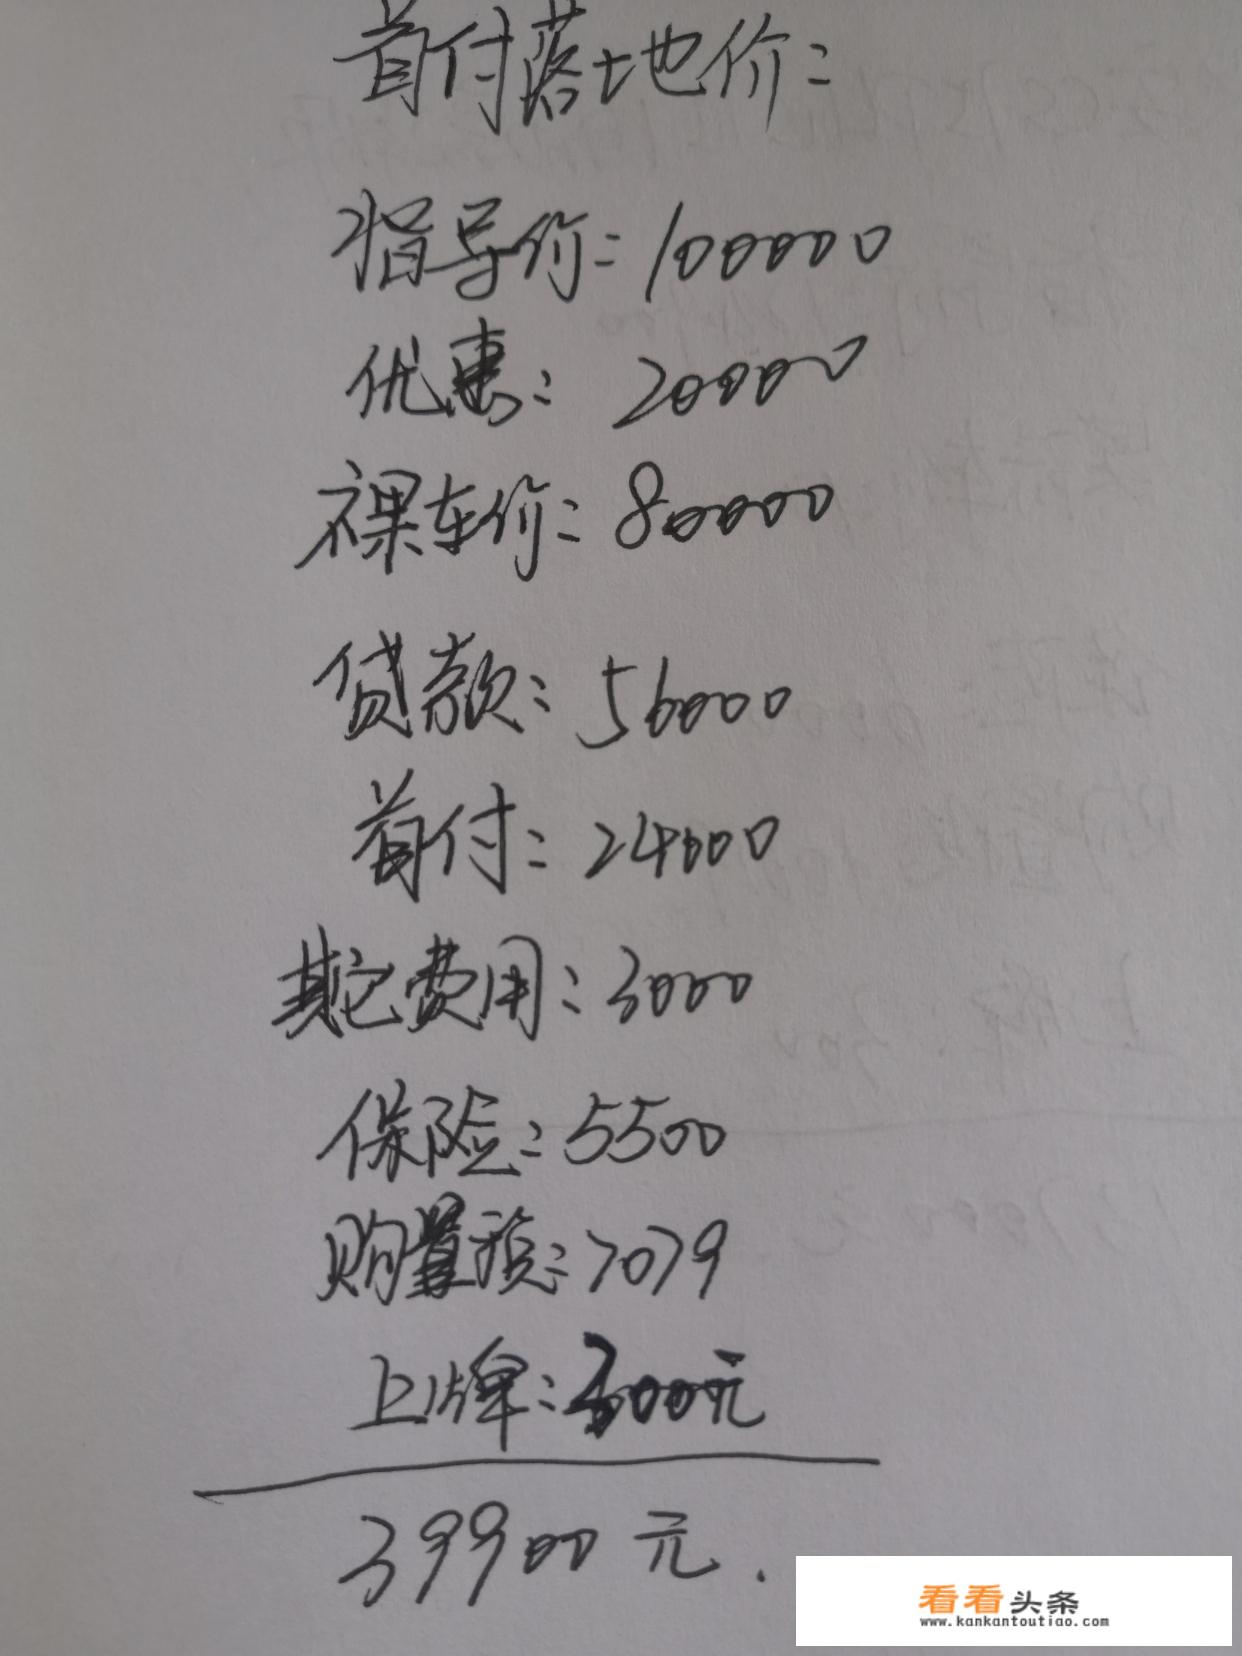 首付落地价:
指导价:100000
优惠:20000
裸车价:80000
贷款:56000
首付:24000
其它费用:3000
保险:5500
购置税:7079
上牌:300元
39900元.
看看头条
www.kankantoutiao.com